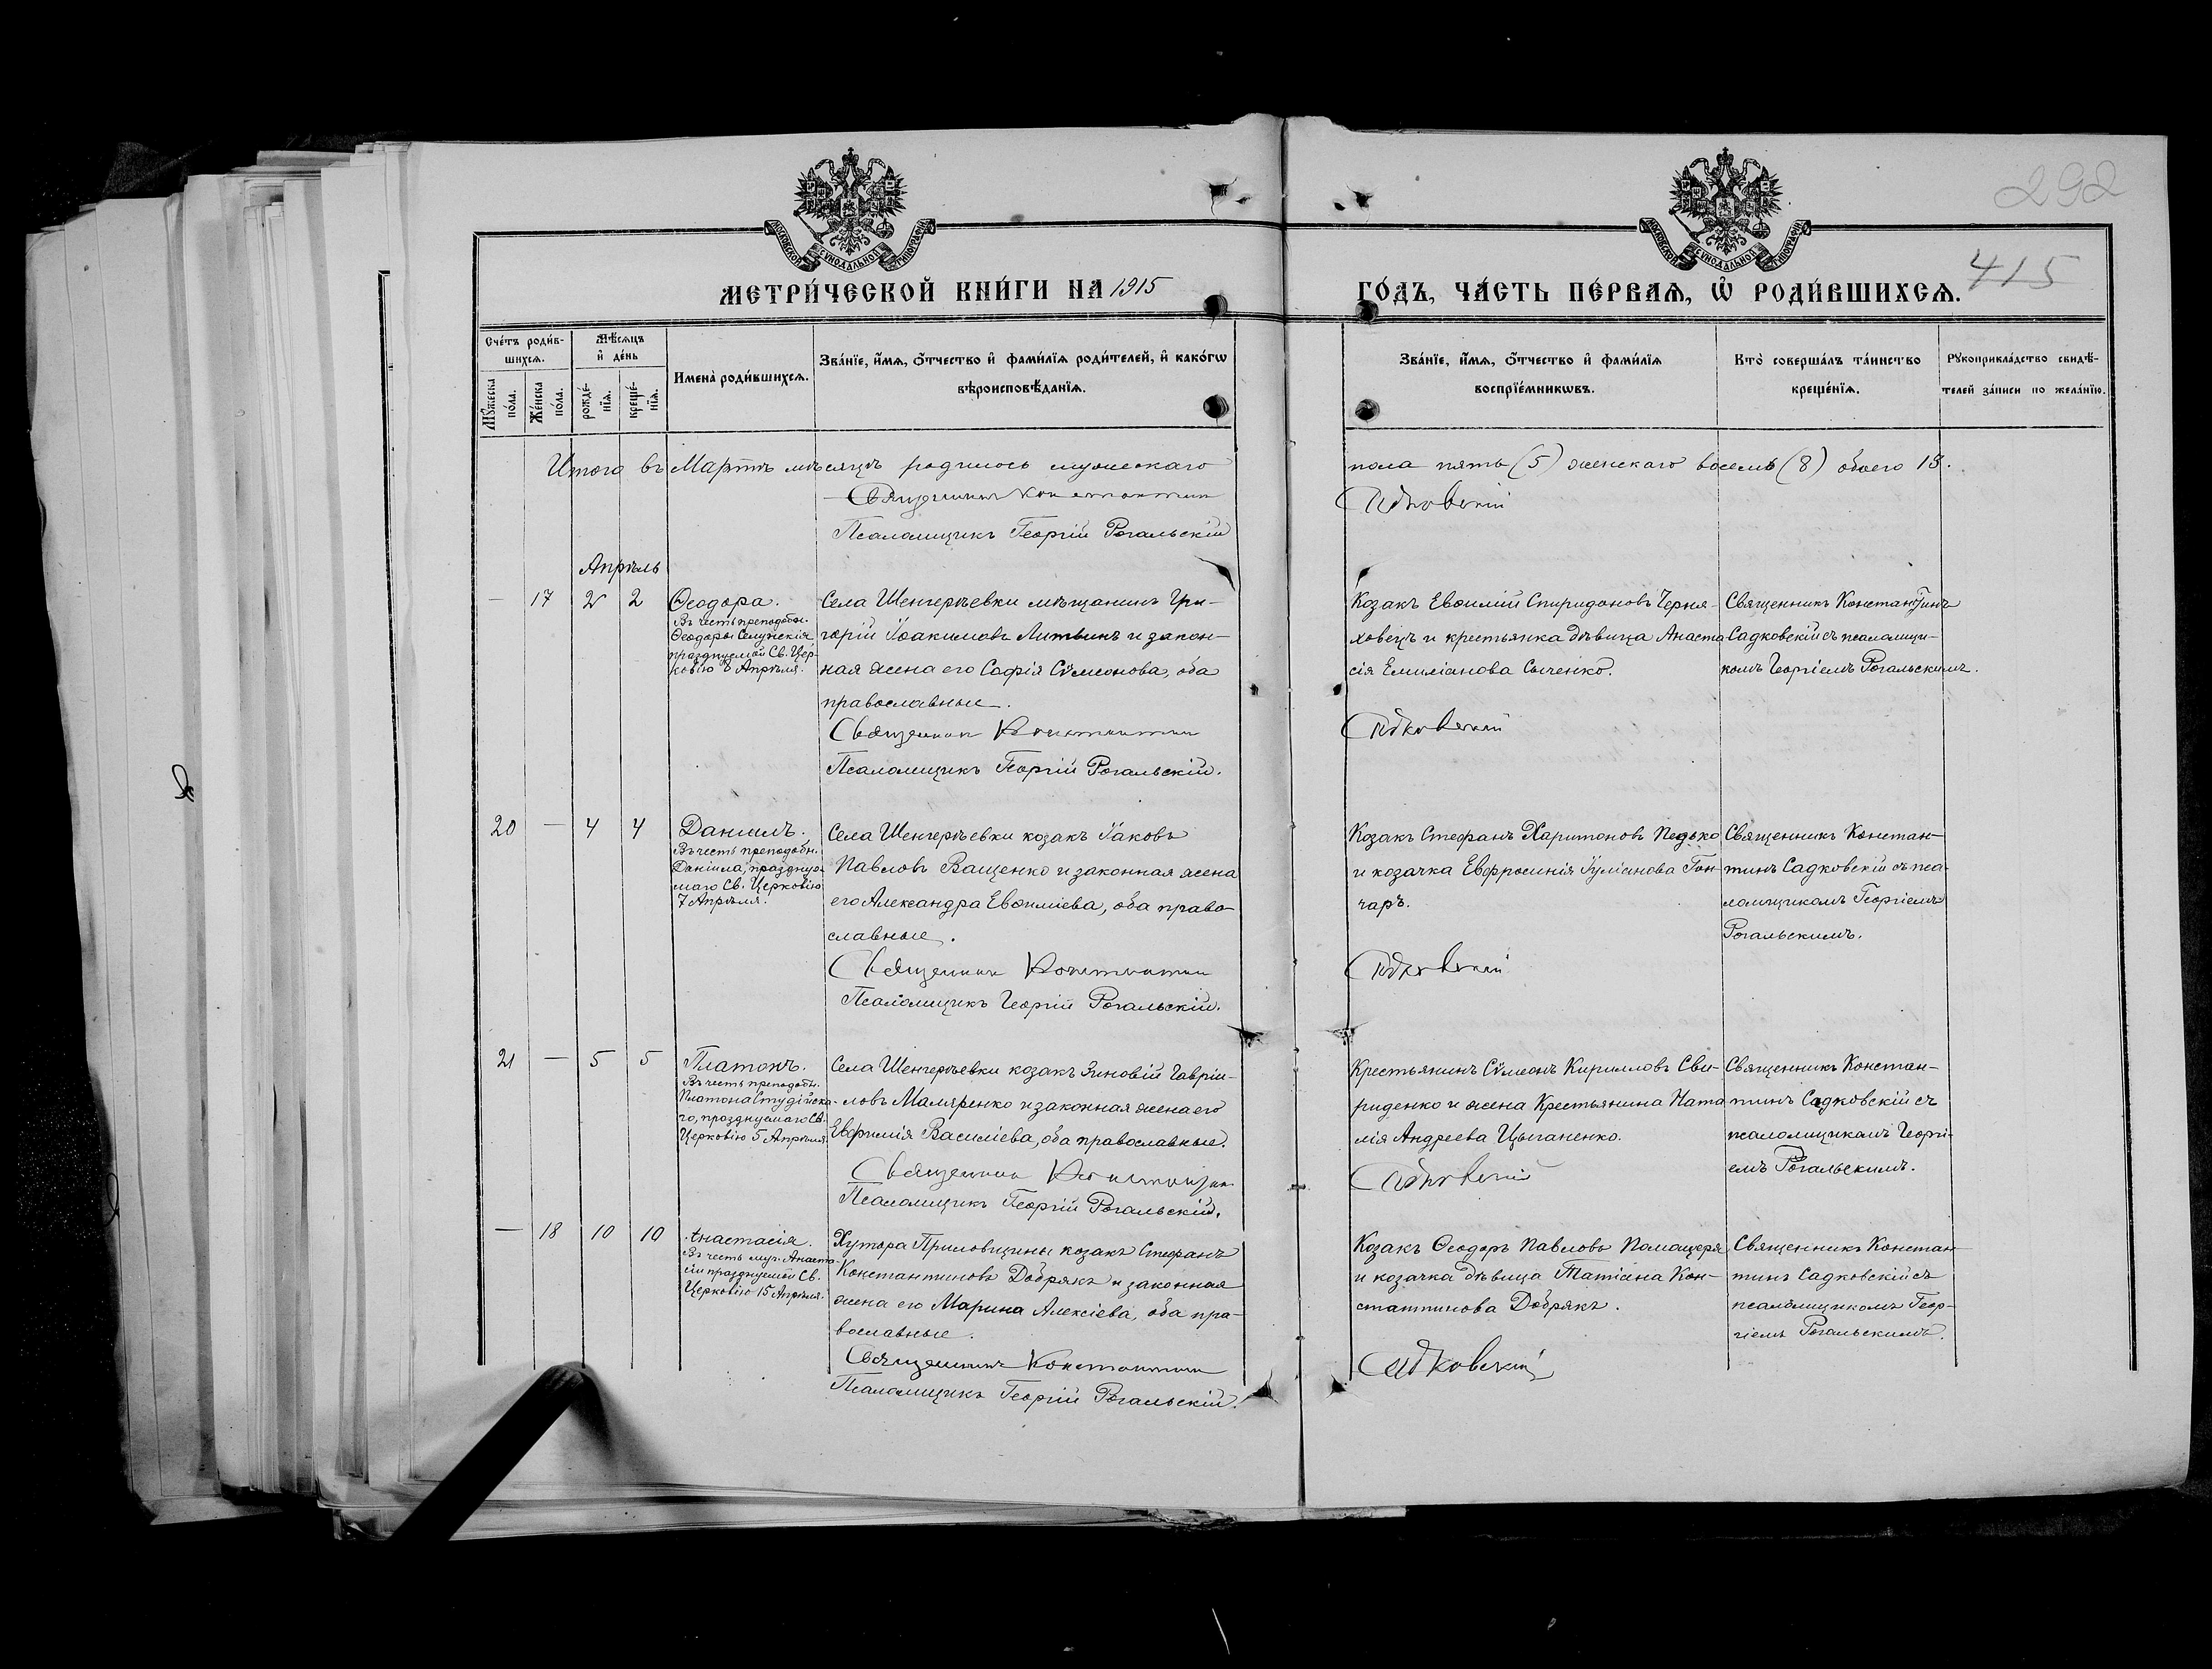 292
415
МОСКОВСКОЙ СѴНОДАЛЬНОЙ ТИПОГРАФІИ
МОСКОВСКОЙ СѴНОДАЛЬНОЙ ТИПОГРАФІИ
МЕТРИ́ЧЕСКОЙ КНИ́ГИ НА 1915 ГО́ДЪ, ЧА́СТЬ ПЕ́РВАѦ, Ѡ҆ РОДИ́ВШИХСѦ.
Сче́тъ роди́в-
шихсѧ.
Мꙋ́жеска по́ла.
Же́нска по́ла.
Мѣ́сѧцъ
и҆ де́нь
рожде́-
нїѧ.
креще́-
нїѧ.
Имена̀ роди́вшихсѧ.
Зва́нїе, и҆́мѧ, ѻ҆́тчество и҆ фами́лїѧ роди́телей, и҆ како́гѡ
вѣроисповѣ́данїѧ.
Зва́нїе, и҆́мѧ, ѻ҆́тчество и҆ фами́лїѧ
воспрїе́мникѡвъ.
Кто̀ соверша́лъ та́инство
креще́нїѧ.
Рꙋкоприкла́дство свидѣ́-
телей за́писи по жела́нїю.
Итого въ Мартѣ мѣсяцѣ родилось мужескаго пола пять (5) женскаго восемь (8) обоего 13.
Священникъ Константинъ Садковскій
Псаломщикъ Георгій Рогальскій
Апрѣль
— 17 2 2
Ѳеодора.
Въ честь преподобн.
Ѳеодоры Селунскія
празднуемой Св. Цер-
ковію 5 Апрѣля.
Села Шенгерѣевки мѣщанинъ Гри-
горій Іоакимовъ Литвинъ и закон-
ная жена его Софія Сѵмеонова, оба
православные.
Священникъ Константинъ
Псаломщикъ Георгій Рогальскій.
Козакъ Евѳимій Спиридоновъ Черня-
ховецъ и крестьянка дѣвица Анаста
сія Емиліанова Сыченко.
Садковскій
Священникъ Константинъ
Садковскій съ псаломщи-
комъ Георгіемъ Рогальскимъ.
20 — 4 4
Даніилъ.
Въ честь преподобн.
Даніила, празднуе-
маго Св. Церковію
7 Апрѣля.
Села Шенгерѣевки козакъ Іаковъ
Павловъ Ващенко и законная жена
его Александра Евѳиміева, оба право-
славные.
Священникъ Константинъ
Псаломщикъ Георгій Рогальскій.
Козакъ Стефанъ Харитоновъ Педько
и козачка Евфросинія Іуліанова Гон-
чаръ.
Садковскій
Священникъ Констан-
тинъ Садковскій съ пса-
ломщикомъ Георгіемъ
Рогальскимъ.
21 — 5 5
Платонъ.
Въ честь преподобн.
Платона Студійска-
го, празднуемаго Св.
Церковію 5 Апрѣля.
Села Шенгерѣевки козакъ Зиновій Гавріи-
ловъ Маляренко и законная жена его
Евфимія Василіева, оба православные.
Священникъ Константинъ
Псаломщикъ Георгій Рогальскій.
Крестьянинъ Сѵмеонъ Кирилловъ Сви-
риденко и жена Крестьянина Ната
лія Андреева Цыганенко.
Садковскій
Священникъ Констан-
тинъ Садковскій съ
псаломщикомъ Георгі-
емъ Рогальскимъ.
— 18 10 10
Анастасія.
Въ честь муч. Анаста-
сіи празднуемой Св.
Церковію 15 Апрѣля.
Хутора Приловщины козакъ Стефанъ
Константиновъ Добрякъ и законная
жена его Марина Алексіева, оба пра-
вославные.
Священникъ Константинъ
Псаломщикъ Георгій Рогальскій.
Козакъ Ѳеодоръ Павловъ Помацеря
и козачка дѣвица Татіана Кон-
стантинова Добрякъ.
Садковскій
Священникъ Констан-
тинъ Садковскій съ
псаломщикомъ Геор-
гіемъ Рогальскимъ.